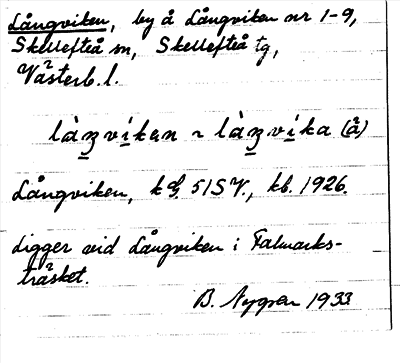 Långviken, by å Långviken nr 1-9,
Skellefteå sn, Skellefteå tg,
Västerb. l.
làŋvíkən ~ làŋvíka (å̀)
Långviken, kbl. 51SV., kb. 1926.
Ligger vid Långviken i Falmarks-
träsket.
B. Nygren 1933